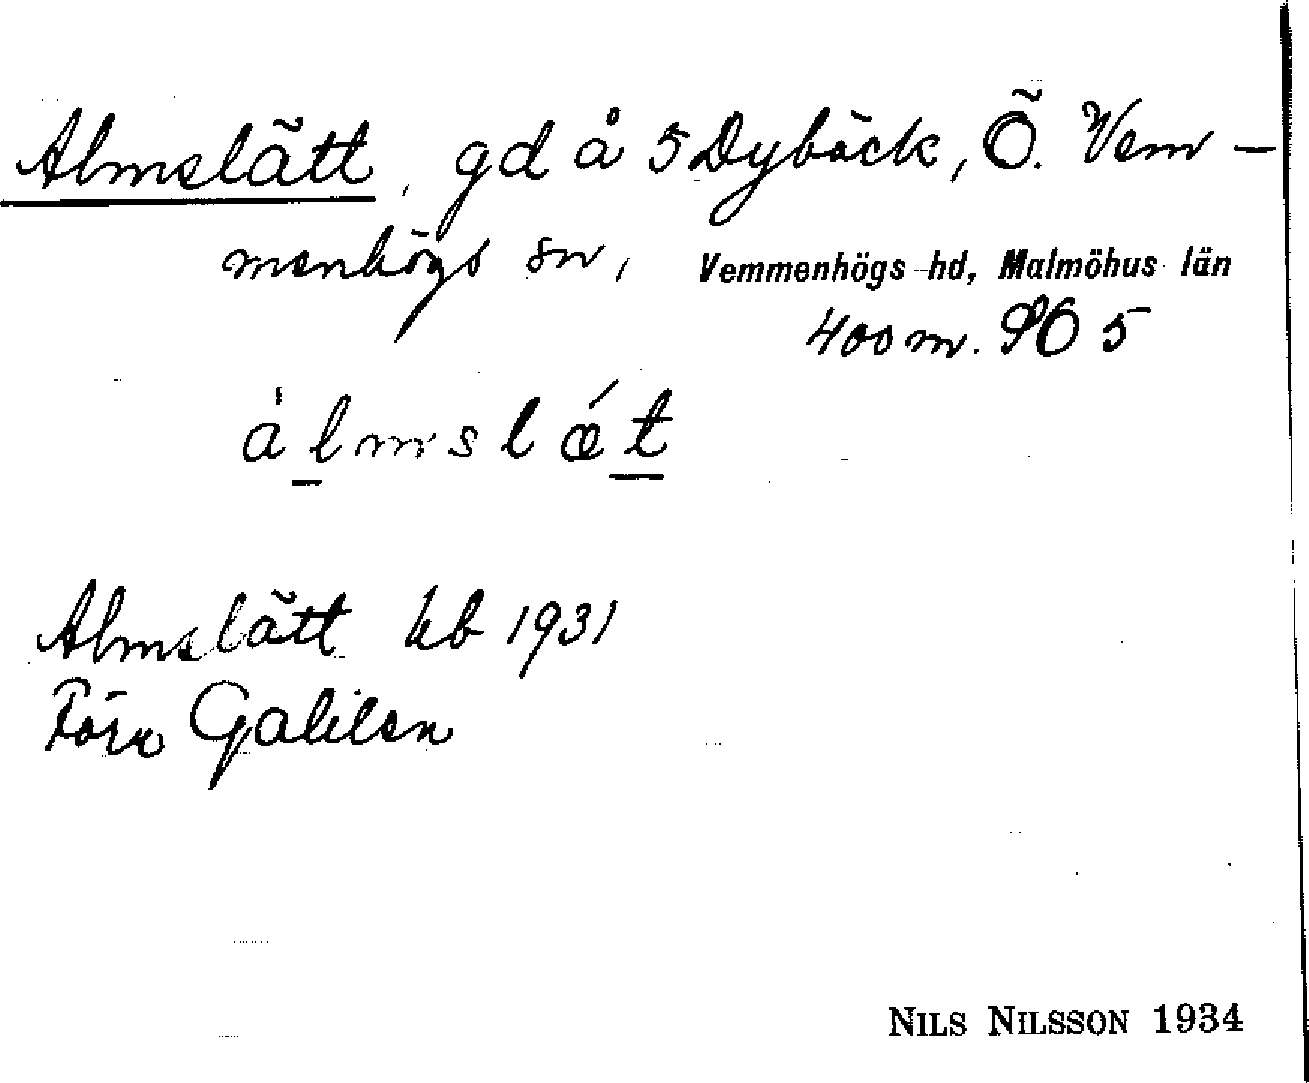 Almslätt, gd å 5 Dybäck, Ö. Vem-
menhögs sn, Vemmenhögs hd, Malmöhus län
400 m. SO 5
a̍lmslǽt
Almslätt kb 1931
Förr Galileen
NILS NILSSON 1934